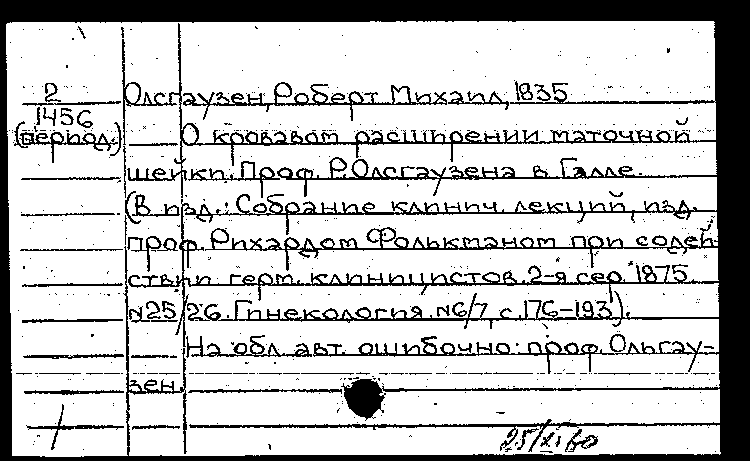 2
1456
(период.)
Олсгаузен, Роберт Михаил, 1835
О кровавом расширении маточной
шейки. Проф. Р. Олсгаузена в Галле.
(В изд.: Собрание клинич. лекций, изд.
проф. Рихардом Фолькманом при содей-
ствии герм. клиницистов. 2-я сер. 1875
N25/26. Гинекология. N6/7, с. 176-193).
На обл. авт. ошибочно: проф. Ольгау-
зен.
25/XI 60